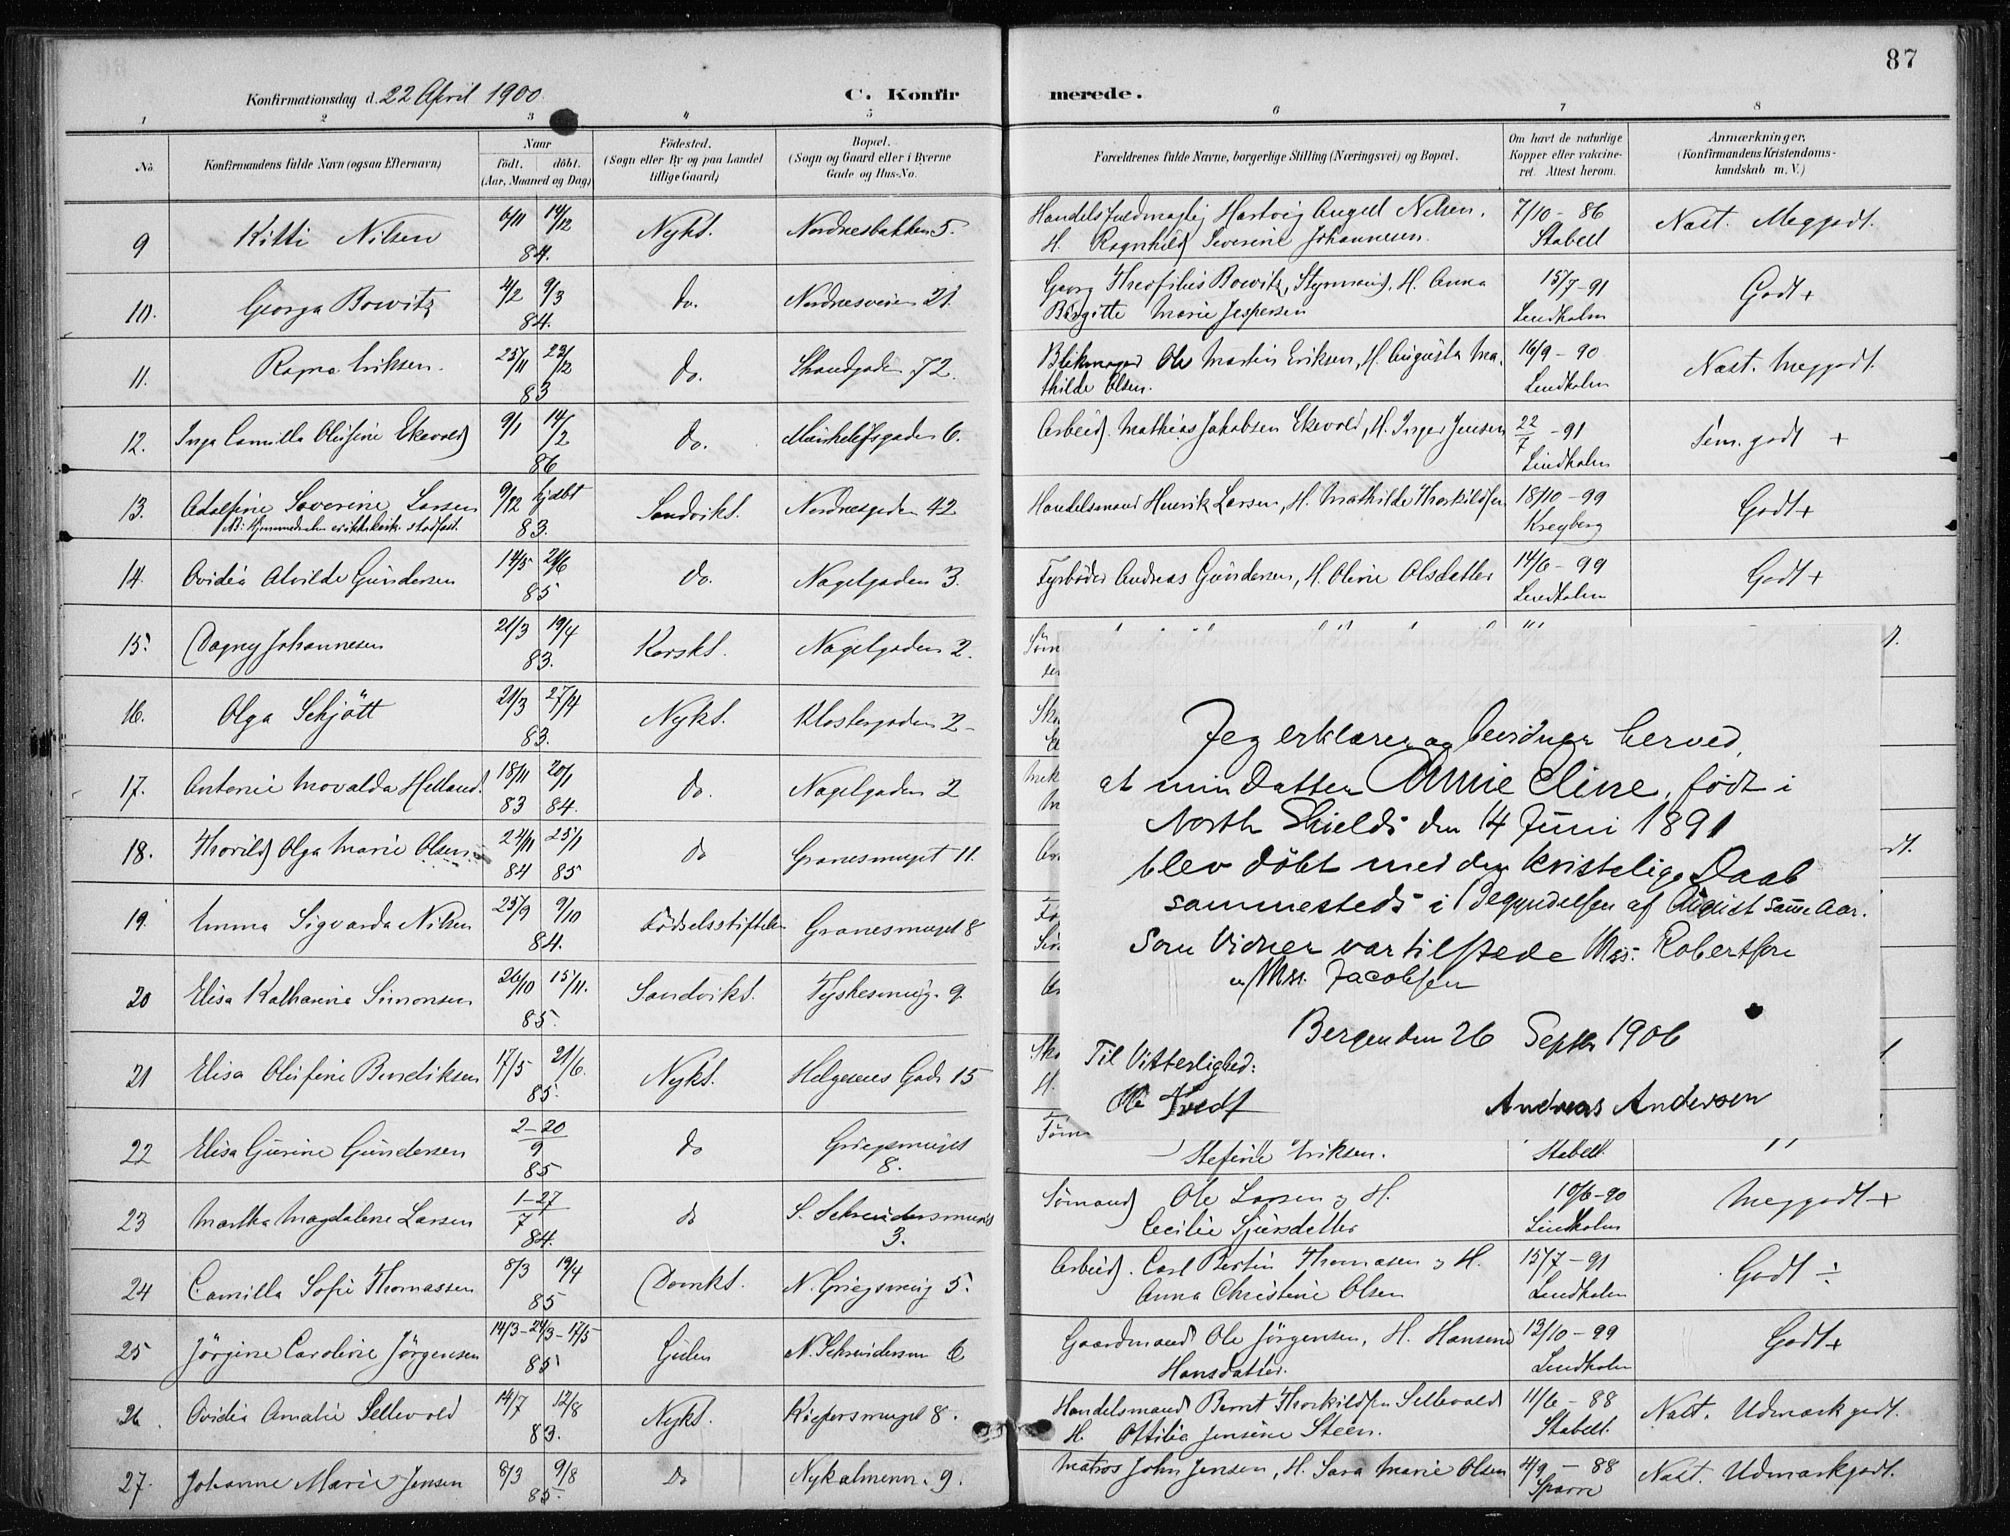 87
Konfirmationsdag d. 22 April 1900.
C. Konfirmerede.
1 2 3 4 5 6 7 8
No. Konfirmandens fulde Navn (ogsaa Efternavn) Naar födt. döbt. (Aar, Maaned og Dag) Födested. (Sogn eller By og paa Landet tillige Gaard) Bopæl. (Sogn og Gaard eller i Byerne Gade og Hus-No. Forældrenes fulde Navne, borgerlige Stilling (Næringsvei) og Bopæl. Om havt de naturlige Kopper eller vakcineret. Attest herom. Anmærkninger, (Konfirmandens Kristendomskundskab m. V.)
9 Kitti Nilsen 6/11 14/12 84. Nykt. Nordnesbakken 5. Handelsfuldmægtig Hartvig Angell Nilsen, H. Ragnhild Severine Johannesen. 7/10 - 86 Stabell Nast. Meg godt.
10. Georga Bowitz 4/2 9/3 84. do. Nordnesveien 21. Georg Theofilus Bowitz, Styrmand, H. Anna Birgitte Marie Jespersen 15/7 - 91 Lindholm Godt +
11. Ragna Eriksen. 25/11 23/12 83 do. Strandgaden 72. Blikmager Ole Martin Eriksen, H. Augusta Mathilde Olsen. 16/9 - 90 Lindholm Nast. Meg godt.
12. Inga Camilla Olufine Ekevold 9/1 14/2 86 do. Munkelifsgaden 6. Arbeid. Mathias Jakobsen Ekevold, H. Inger Jensen 22/7 - 91 Lindholm Tem. godt +
13. Adolfine Severine Larsen 9/12 hjdøbt 83. Sandvikt. Nordnesgaden 42. Handelsmand Henrik Larsen, H. Mathilde Thorkildsen 18/10 - 99 Kreyberg Godt +
14. Ovidia Alvilde Gundersen 14/5 21/6 85 do. Nagelgaden 3. Fyrbøder Andreas Gundersen, H. Oline Olsdatter 14/6 - 99 Lindholm Godt +
15. Dagny Johannesen 21/3 19/4 83. Korskt. Nagelgaden 2.
16. Olga Schjött 21/3 27/4 83. Nykt. Klostergaden 2
17. Antonie Movalda Helland. 18/11 20/1 83 84. do. Nagelgaden 2
18. Thorild Olga Marie Olsen 22/11 25/1 84 85 do Granesmuget 11.
19. Emma Sigvarda Nilsen 25/9 9/10 84. Fødselsstiftelsen Granesmuget 8
20 Elisa Katharina Simonsen 26/10 15/11. 85. Sandvikt. Tyskesmug. 9.
21 Elisa Olufine Bendiksen 17/5 21/6. 85. Nykt. Helgesens Gade 15
22 Elisa Gurine Gundersen 2 - 20 9 85 do Griegsmuget 8. Stefine Eriksen. Stabell
23 Martha Magdalene Larsen 1 - 27 7 84. do S. Schreudersmuget 3. Sömand Ole Larsen og H. Cecilie Sjursdatter 10/6 - 90 Lindholm Meg godt +
24 Camilla Sofie Thomassen 8/3 19/4 85 Domkt. N. Griegsmug 5. Arbeid. Carl Bertin Thomasen og H. Anna Christine Olsen 15/7 - 91 Lindholm Godt ÷
25 Jörgine Caroline Jörgensen 14/3 - 24/3 - 17/5 85 Gulen N. Schreudersm 6 Gaardmand Ole Jörgensen, H. Hansine Hansdatter. 13/10 - 99 Lindholm Godt +
26. Ovidia Amalie Sellevold 14/7 12/8 83. Nykt. Kipersmuget 8. Handelsmand Bernt Thorkildsen Sellevold H. Ottilia Jensine Steen. 11/6 - 88 Stabell Nast. Udmærk godt.
27. Johanne Marie Jensen 8/3 9/8 85. do Nykalmenn. 9. Matros John Jensen, H. Sara Marie Olsen 4/9 - 88 Sparre Nast. Udmærk godt.
Jeg erklærer og bevidner herved,
at min datter Annie Eline, født i
North Shields den 14 Juni 1891
blev døbt med den kristelige Daab
sammesteds i Begyndelsen af August samme Aar.
Som Vidner var tilstede Mss. Robertson
og Mss. Jacobsen
Bergen den 26 Septbr 1906
Til Vitterlighed:
Ole Tvedt Andreas Andersen